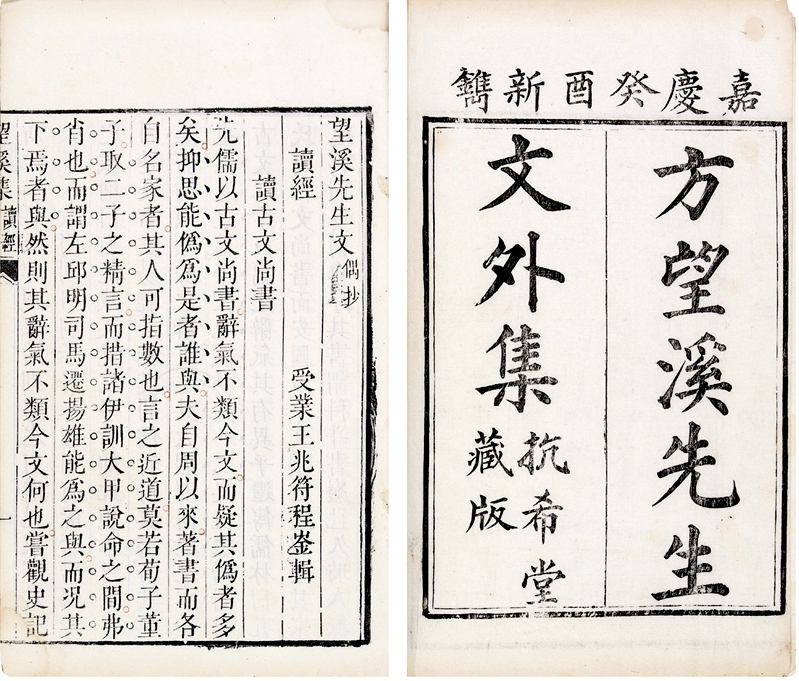 嘉慶癸酉新鐫
方望溪先生
文外集
抗希堂
藏版
望溪先生文偶抄
讀經
受業王兆符程崟輯
讀古文尚書
先儒以古文尚書辭氣不類今文而疑其僞者多
矣抑思能僞爲是者誰與夫自周以來著書而各
自名家者其人可指數也言之近道莫若荀子董
子取二子之精言而措諸伊訓大甲說命之間弗
肖也而謂左邱明司馬遷揚雄能爲之與而况其
下焉者與然則其辭氣不類今文何也嘗觀史記
望溪集
讀經
一